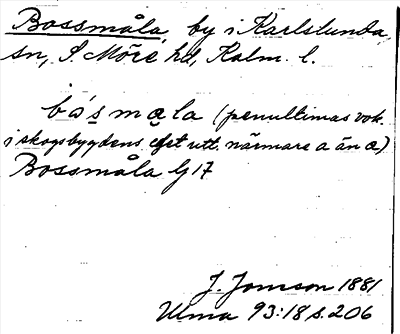 Bossmåla, by i Karlslunda
sn, S. Möre hd, Kalm. l.
bo̍smala (penultimas vok.
i skogsbygdens utt. närmare a än a)
Bossmåla G 17
J. Jonsson 1881
Ulma 93:18 s. 206